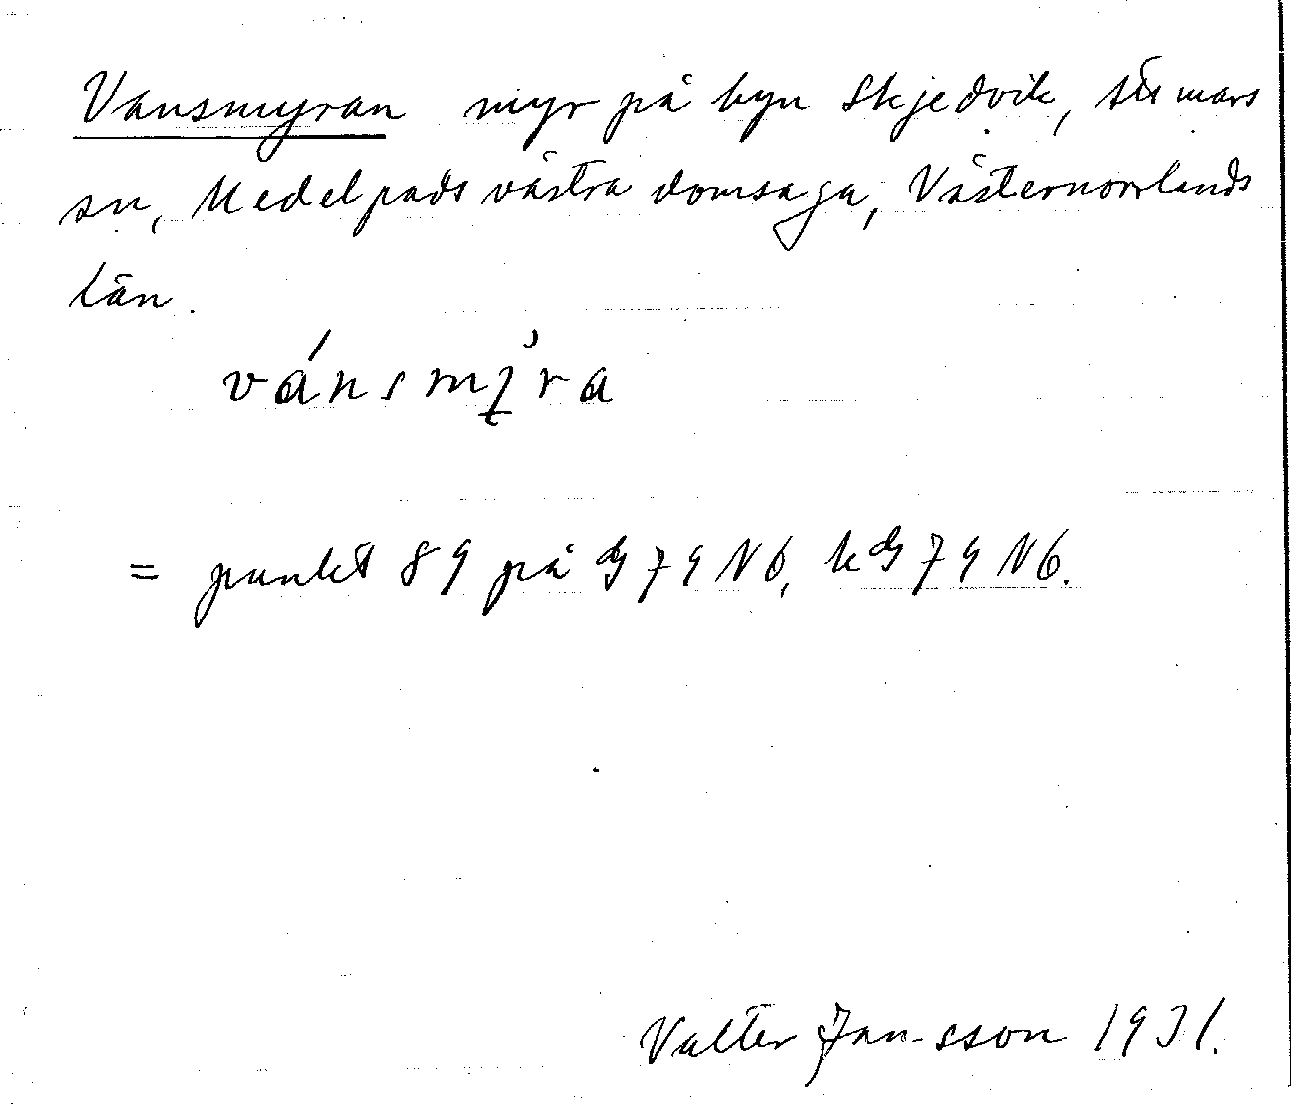 Vansmyran myr på byn Skjedvik, Stömars
sn, Medelpads västra domsaga, Västernorrlands
län.
vánsmýra
= punkt 89 på dg 79 N6, k dg 79 N6.
Valter Jansson 1931.